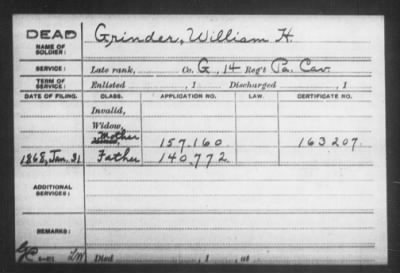 DEAD
NAME OF SOLDIER: Grinder, William H.
SERVICE: Late rank, Co. G, 14 Reg't Pa. Cav.
TERM OF SERVICE: Enlisted , 1 Discharged , 1
DATE OF FILING. CLASS. APPLICATION NO. LAW. CERTIFICATE NO.
Invalid,
Widow,
Mother 157.160 163207.
1868, Jan. 31 Father 140.772
ADDITIONAL SERVICES:
REMARKS:
Died , 1 , at